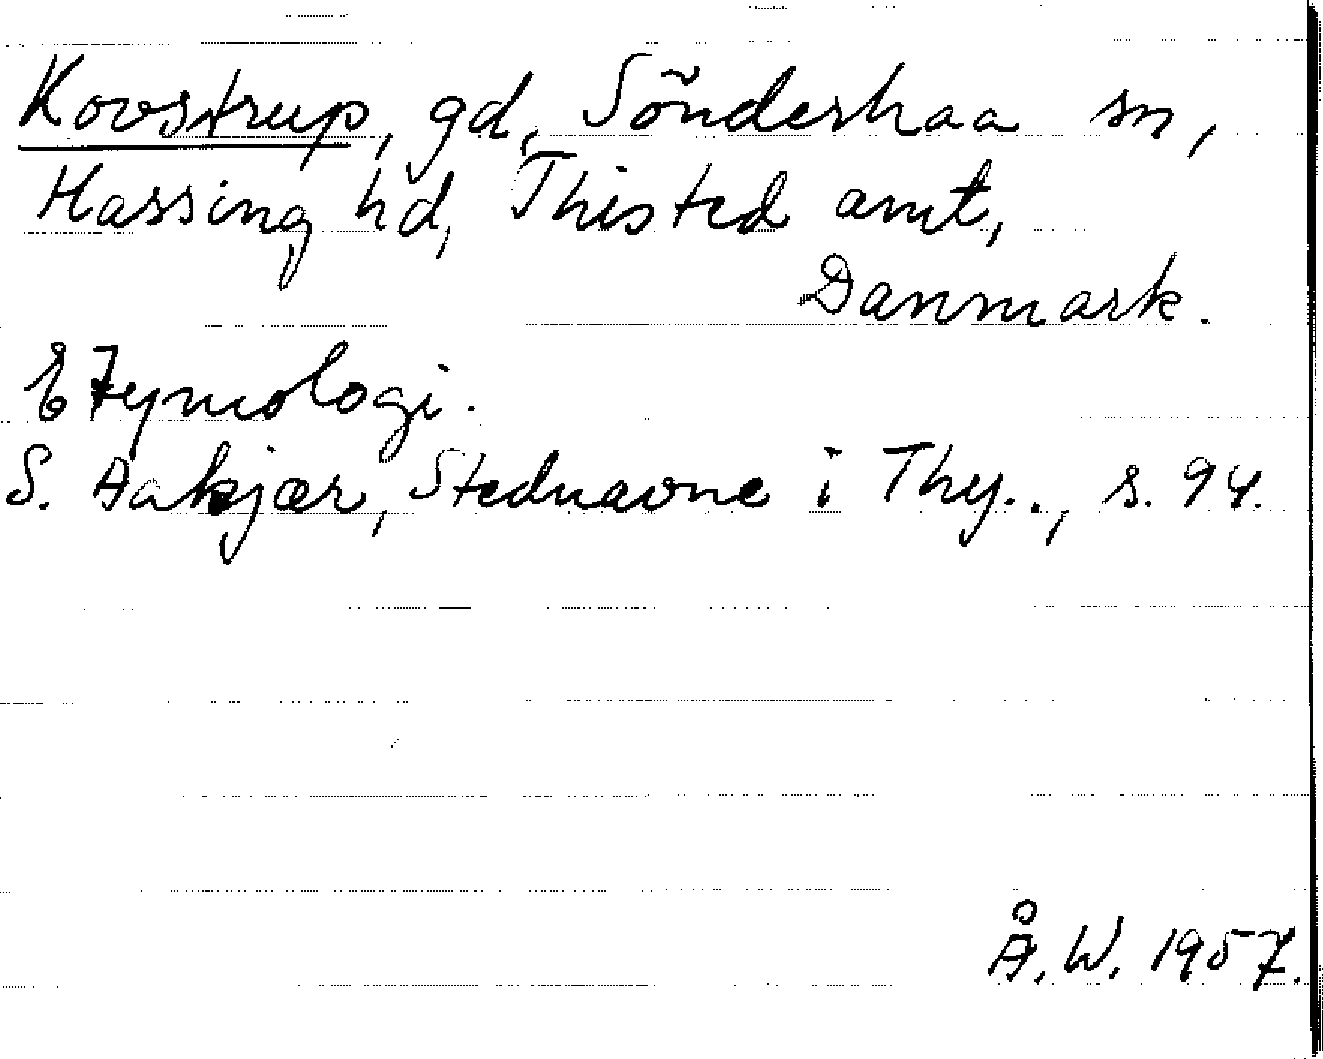 Kovstrup, gd, Sönderhaa sn,
Hassing hd, Thisted amt,
Danmark.
Etymologi.
S. Aakjær, Stednavne i Thy., s. 94.
Å. W. 1957.